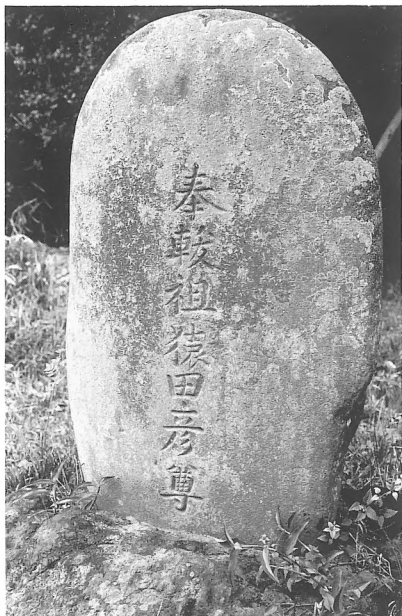 奉䡎祖猿田彦尊